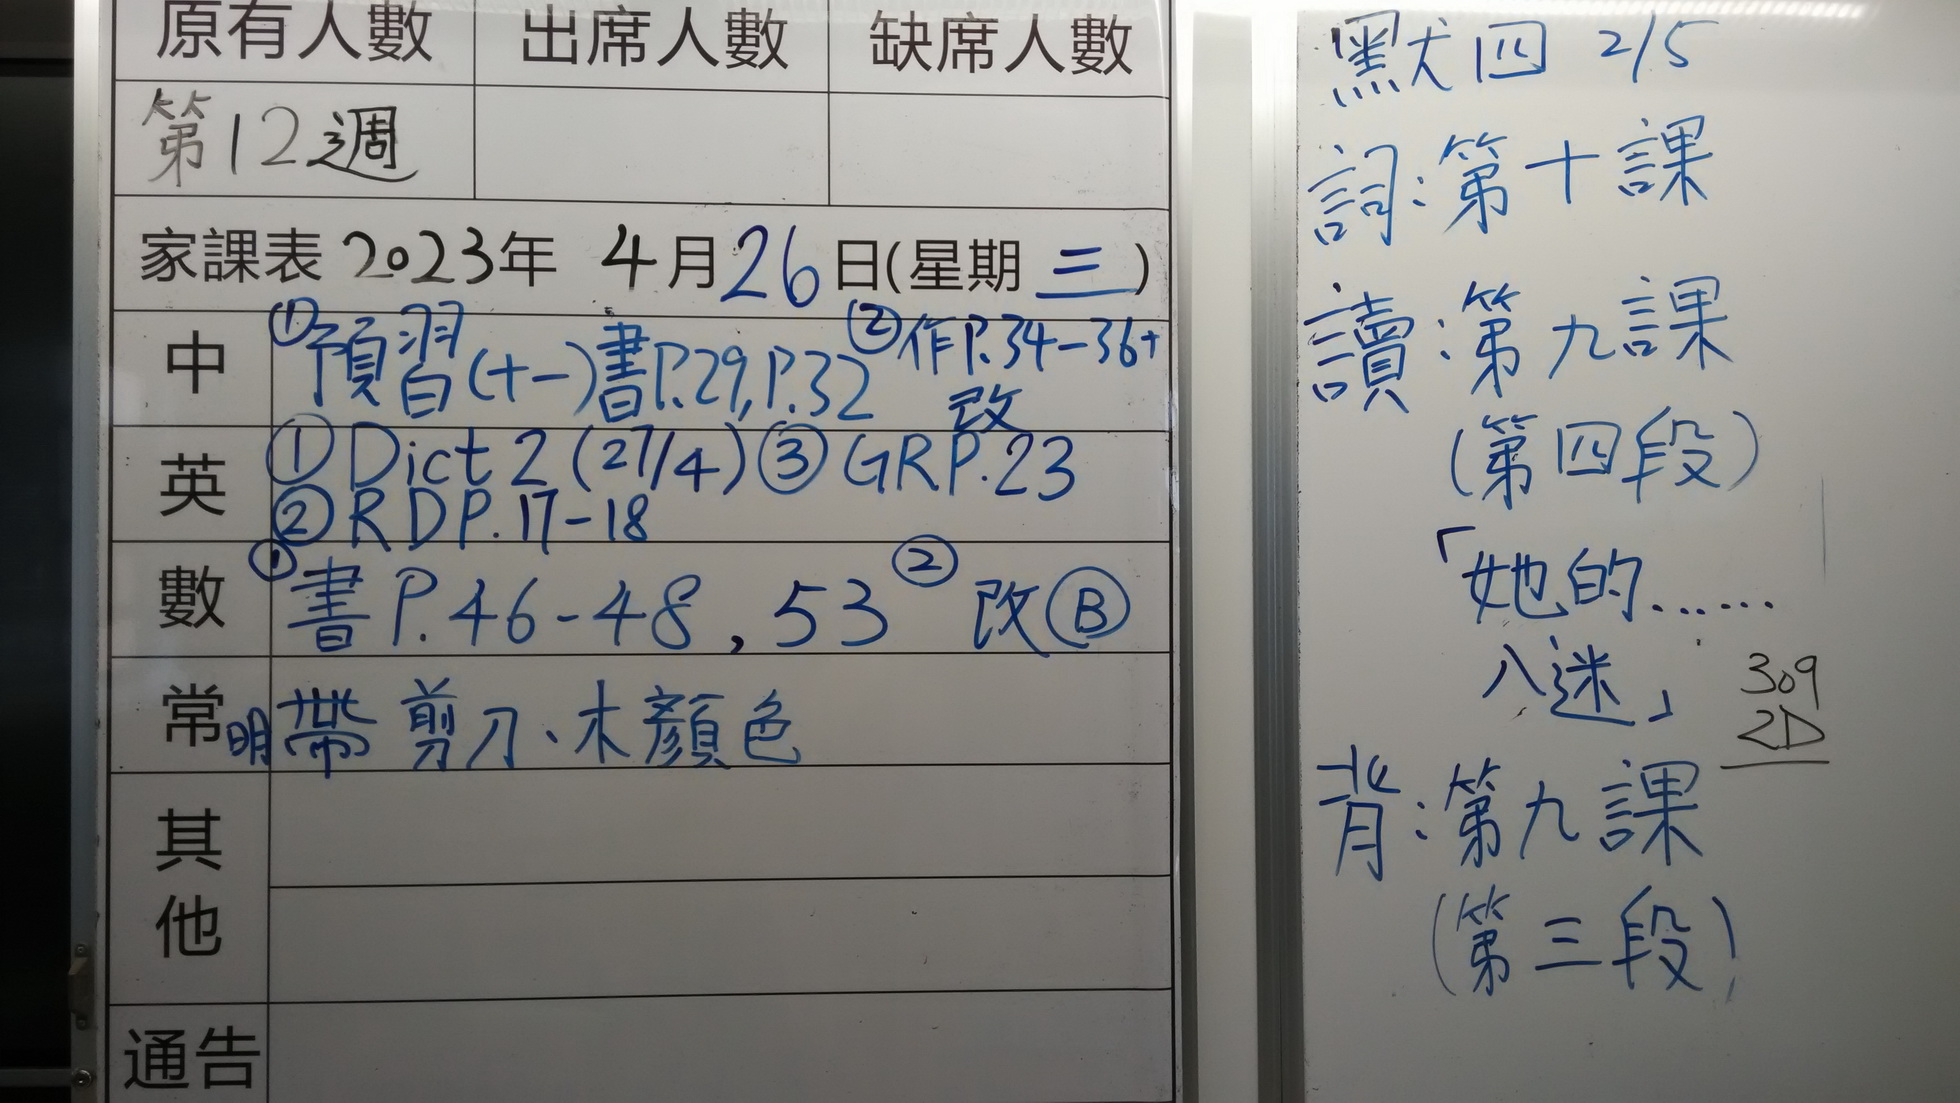 原有人數 出席人數 缺席人數
第12週
家課表 2023年 4月26日(星期三)
中 ①預習(十一)書P.29,P.32 ②作P.34-36+
改
英 ①Dict 2 (27/4) ③GRP.23
②RDP.17-18
數 ①書P.46-48,53 ②改Ⓑ
常 明帶剪刀、木顏色
其
他
通告
默四 2/5
詞:第十課
讀:第九課
(第四段)
「她的……
入迷」
309
2D
背:第九課
(第三段)